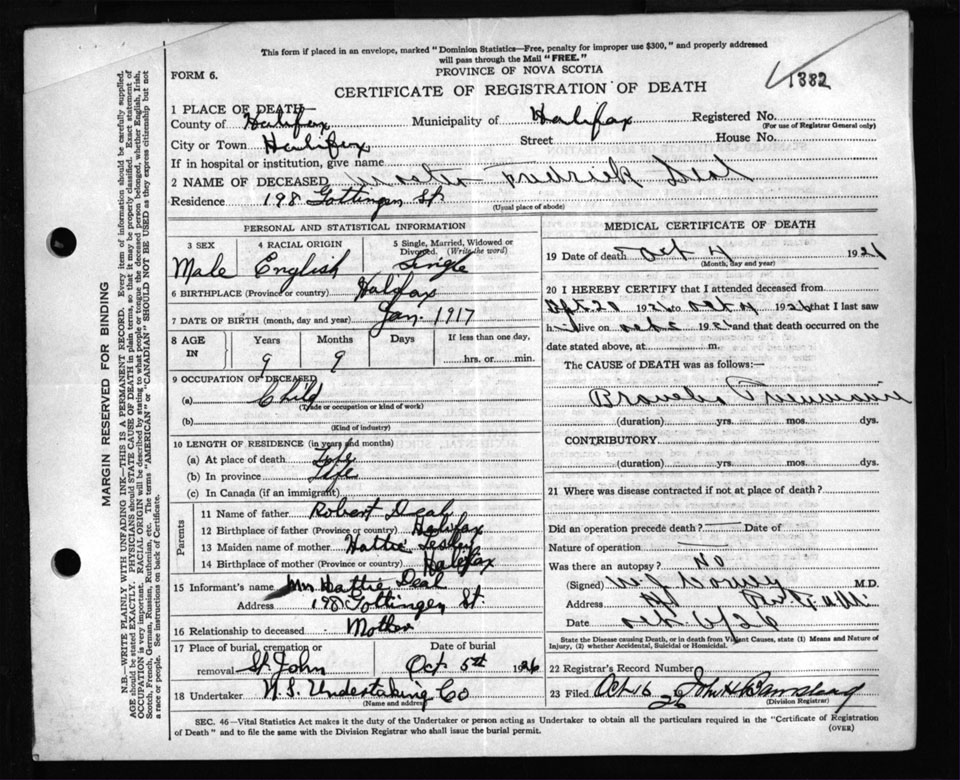 This form if placed in an envelope, marked "Dominion Statistics—Free, penalty for improper use $300," and properly addressed
will pass through the Mail "FREE."
PROVINCE OF NOVA SCOTIA
FORM 6.
1382
CERTIFICATE OF REGISTRATION OF DEATH
1 PLACE OF DEATH—
County of Halifax Municipality of Halifax Registered No.
(For use of Registrar General only)
City or Town Halifax Street House No.
If in hospital or institution, give name
2 NAME OF DECEASED Fredrick Deal
Residence 198 Gottingen St.
(Usual place of abode)
PERSONAL AND STATISTICAL INFORMATION
3 SEX 4 RACIAL ORIGIN 5 Single, Married, Widowed or Divorced. (Write the word)
Male English Single
6 BIRTHPLACE (Province or country) Halifax
7 DATE OF BIRTH (month, day and year) Jan. 1917
8 AGE IN Years Months Days If less than one day,
9 9 hrs. or min.
9 OCCUPATION OF DECEASED
(a) Child
(Trade or occupation or kind of work)
(b)
(Kind of industry)
10 LENGTH OF RESIDENCE (in years and months)
(a) At place of death Life
(b) In province Life
(c) In Canada (if an immigrant)
Parents
11 Name of father Robert Deal
12 Birthplace of father (Province or country) Halifax
13 Maiden name of mother Hattie
14 Birthplace of mother (Province or country) Halifax
15 Informant's name Mrs Hattie Deal
Address 198 Gottingen St.
16 Relationship to deceased Mother
17 Place of burial, cremation or removal St. John Date of burial Oct 5th 1926
18 Undertaker N.S. Undertaking Co
(Name and address)
MEDICAL CERTIFICATE OF DEATH
19 Date of death Oct 4 1926
(Month, day and year)
20 I HEREBY CERTIFY that I attended deceased from
Sept. 20 1926 to Oct 4 1926 that I last saw
him alive on 1926 and that death occurred on
date stated above, at m.
The CAUSE OF DEATH was as follows:—
Broncho Pneumonia
(duration) yrs. mos. dys.
CONTRIBUTORY
(duration) yrs. mos. dys.
21 Where was disease contracted if not at place of death?
Did an operation precede death? Date of
Nature of operation
Was there an autopsy? No
(Signed) M.D.
Address
Date 6/26
State the Disease causing Death, or in death from Violent Causes, state (1) Means and Nature of
Injury, (2) whether Accidental, Suicidal or Homicidal.
22 Registrar's Record Number
23 Filed Oct 16 26 John H Barnstead
(Division Registrar)
SEC. 46—Vital Statistics Act makes it the duty of the Undertaker or person acting as Undertaker to obtain all the particulars required in the "Certificate of Registration
of Death" and to file the same with the Division Registrar who shall issue the burial permit. (OVER)
MARGIN RESERVED FOR BINDING
N.B.—WRITE PLAINLY WITH UNFADING INK—THIS IS A PERMANENT RECORD. Every item of information should be carefully supplied.
AGE should be stated EXACTLY. PHYSICIANS should STATE CAUSE OF DEATH in plain terms, so that it may be properly classified. Exact statement of
OCCUPATION is very important. RACIAL ORIGIN will be described by stating to what people or tongue the deceased person belonged, whether English, Irish,
Scotch, French, German, Russian, Ruthenian, etc. The terms "AMERICAN" or "CANADIAN" SHOULD NOT BE USED as they express citizenship but not
a race or people. See instructions on back of Certificate.